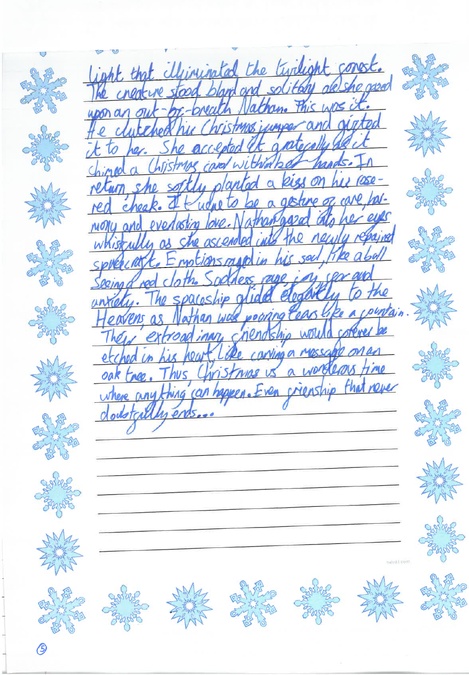 light that illiminated the twilight forest.
The creature stood bland and solitary as she gazed
upon an out-of-breath Nathan. This was it.
He clutched his Christmas jumper and gifted
it to her. She accepted it gratefully as it
chimed a Christmas carol within her hands. In
return, she softly planted a kiss on his rose-
red cheek. It was to be a gesture of care, har-
mony and everlasting love. Nathan gazed into her eyes
whistfully as she ascended into the newly repaired
spacecraft. Emotions raged in his soul, like a bull
seeing a red cloth. Sadness, rage, joy, fear and
anxiety. The spaceship glided elegantly to the
Heavens as Nathan was pouring tears like a fountain.
Their extrodinary friendship would forever be
etched in his heart, like carving a message on an
oak tree. Thus, Christmas is a wonderous time
where anything can happen. Even frienship that never
doubtfully ends...
5